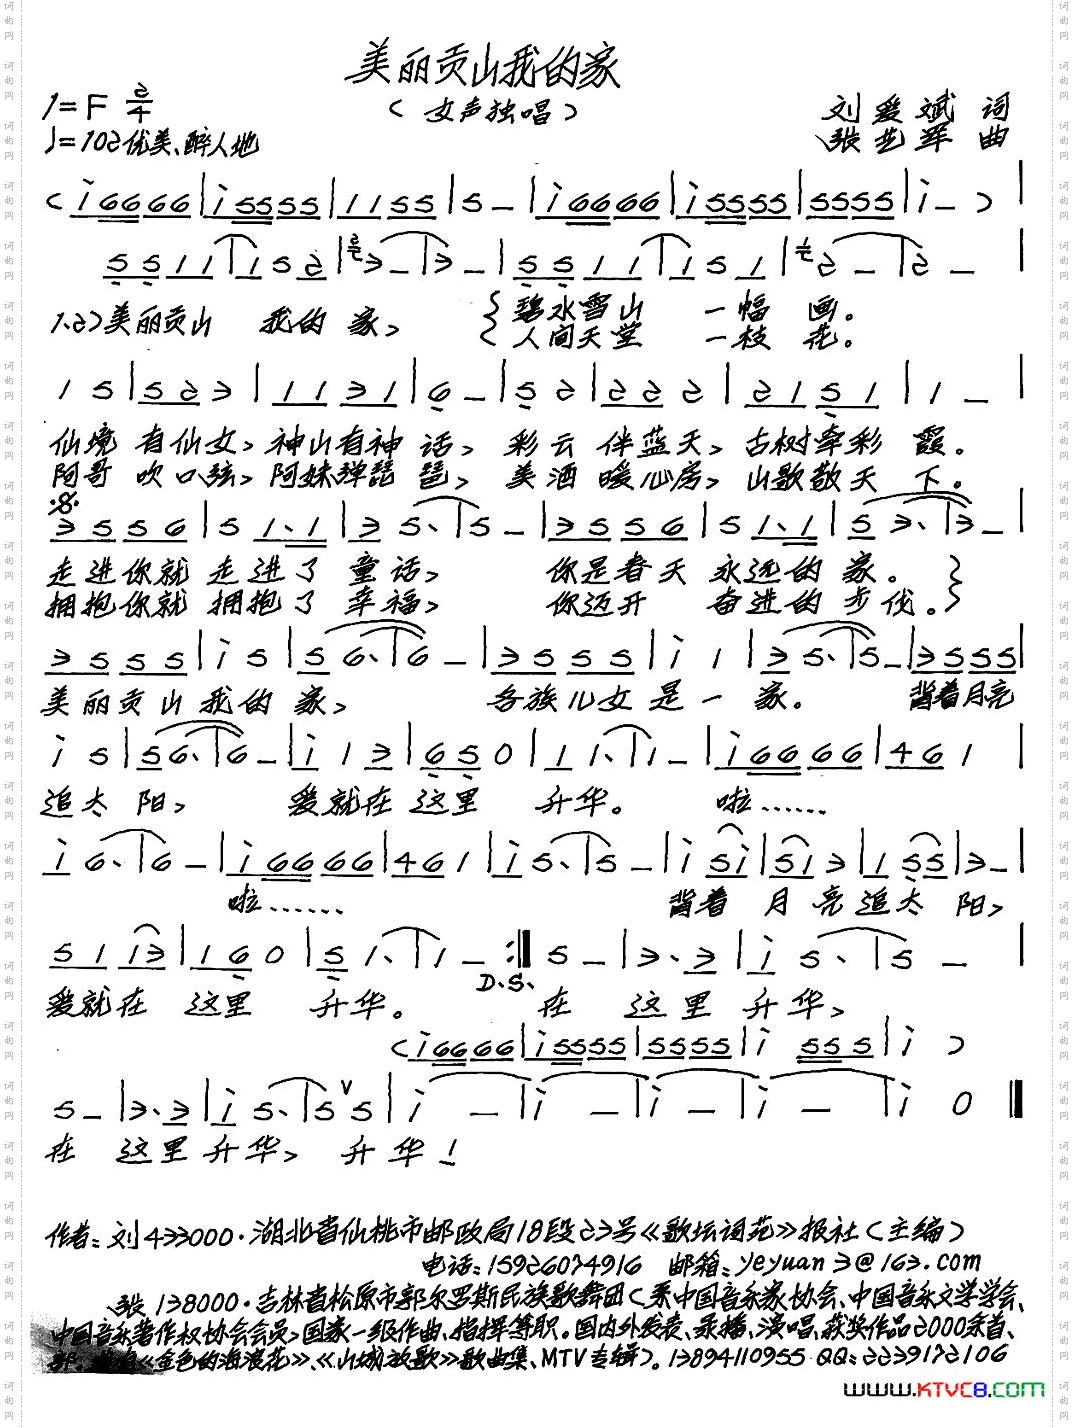 美丽贡山我的家
1=F 2/4
(女声独唱)
刘爱斌 词
♩=102 优美、醉人地
张艺军 曲
(i6666|i5555|1155|5–|i6666|i5555|5555|i–)|
5511|152|3–|3–|5511|151|2–|2–|
1.2)美丽贡山 我的家, {碧水雪山 一幅 画。
人间天堂 一枝 花。
15|523|1131|6–|52|222|2151|1–|
仙境 有仙女, 神山有神 话, 彩云 伴蓝天, 古树牵彩 霞。
阿哥 吹口弦, 阿妹弹琵 琶, 美酒 暖心房, 山歌敬天 下。
3556|51.1|35.|5–|3556|51.1|53.|3–|
走进你就 走进了 童话, 你是春天 永远的 家。}
拥抱你就 拥抱了 幸福, 你迈开 奋进的 步伐。}
3555|i5|56.|6–|3555|i1|35.|5–|3555|
美丽贡山我的 家, 各族儿女是一 家. 背着月亮
i5|56.|6–|i13|650|11.|1–|i6666|461|
追太 阳, 爱就在 这里 升华。 啦……
i6.|6–|i6666|461|i5.|5–|i5i|513|155|3–|
啦…… 背着 月 亮追太 阳,
5113|160|51.|1–:‖5–|3.3|i5.|5–|
D.S.
爱就在 这里 升华。 在 这里 升华,
(i6666|i5555|5555|i555|i)
5–|3.3|i5.|5ⱽ5|i–|i–|i–|i–|i0‖
在 这里升华, 升华!
作者:刘 433000·湖北省仙桃市邮政局18段23号《歌坛词苑》报社(主编)
电话:15926074916 邮箱:yeyuan3@163.com
张 138000·吉林省松原市郭尔罗斯民族歌舞团(系中国音乐家协会、中国音乐文学学会、
中国音乐著作权协会会员,国家一级作曲、指挥等职。国内外发表、录播、演唱、获奖作品2000余首、
部,《金色的海浪花》、《山城放歌》歌曲集、MTV专辑)。13894110955 QQ:2239172106
www.KTVC8.com